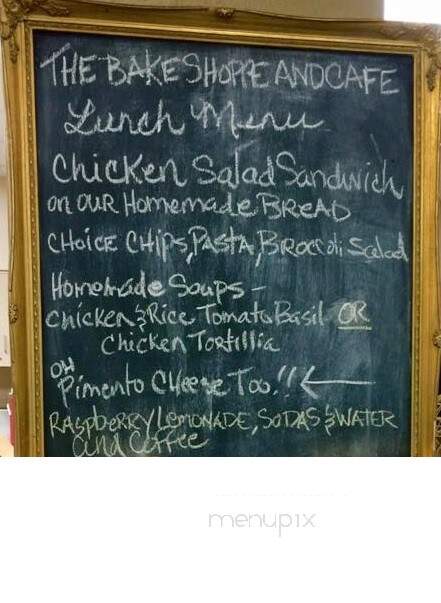 THE BAKE SHOPPE AND CAFE
Lunch Menu
Chicken Salad Sandwich
on OUR Homemade BREAD
CHOICE CHIPS, PASTA, BROCCOLI Salad
Homemade Soups -
Chicken & Rice, Tomato Basil OR
Chicken Tortillia
OH
Pimento CHeese Too!! ←
RASPBERRY LEMONADE, SODAS & WATER
and Coffee
menupix